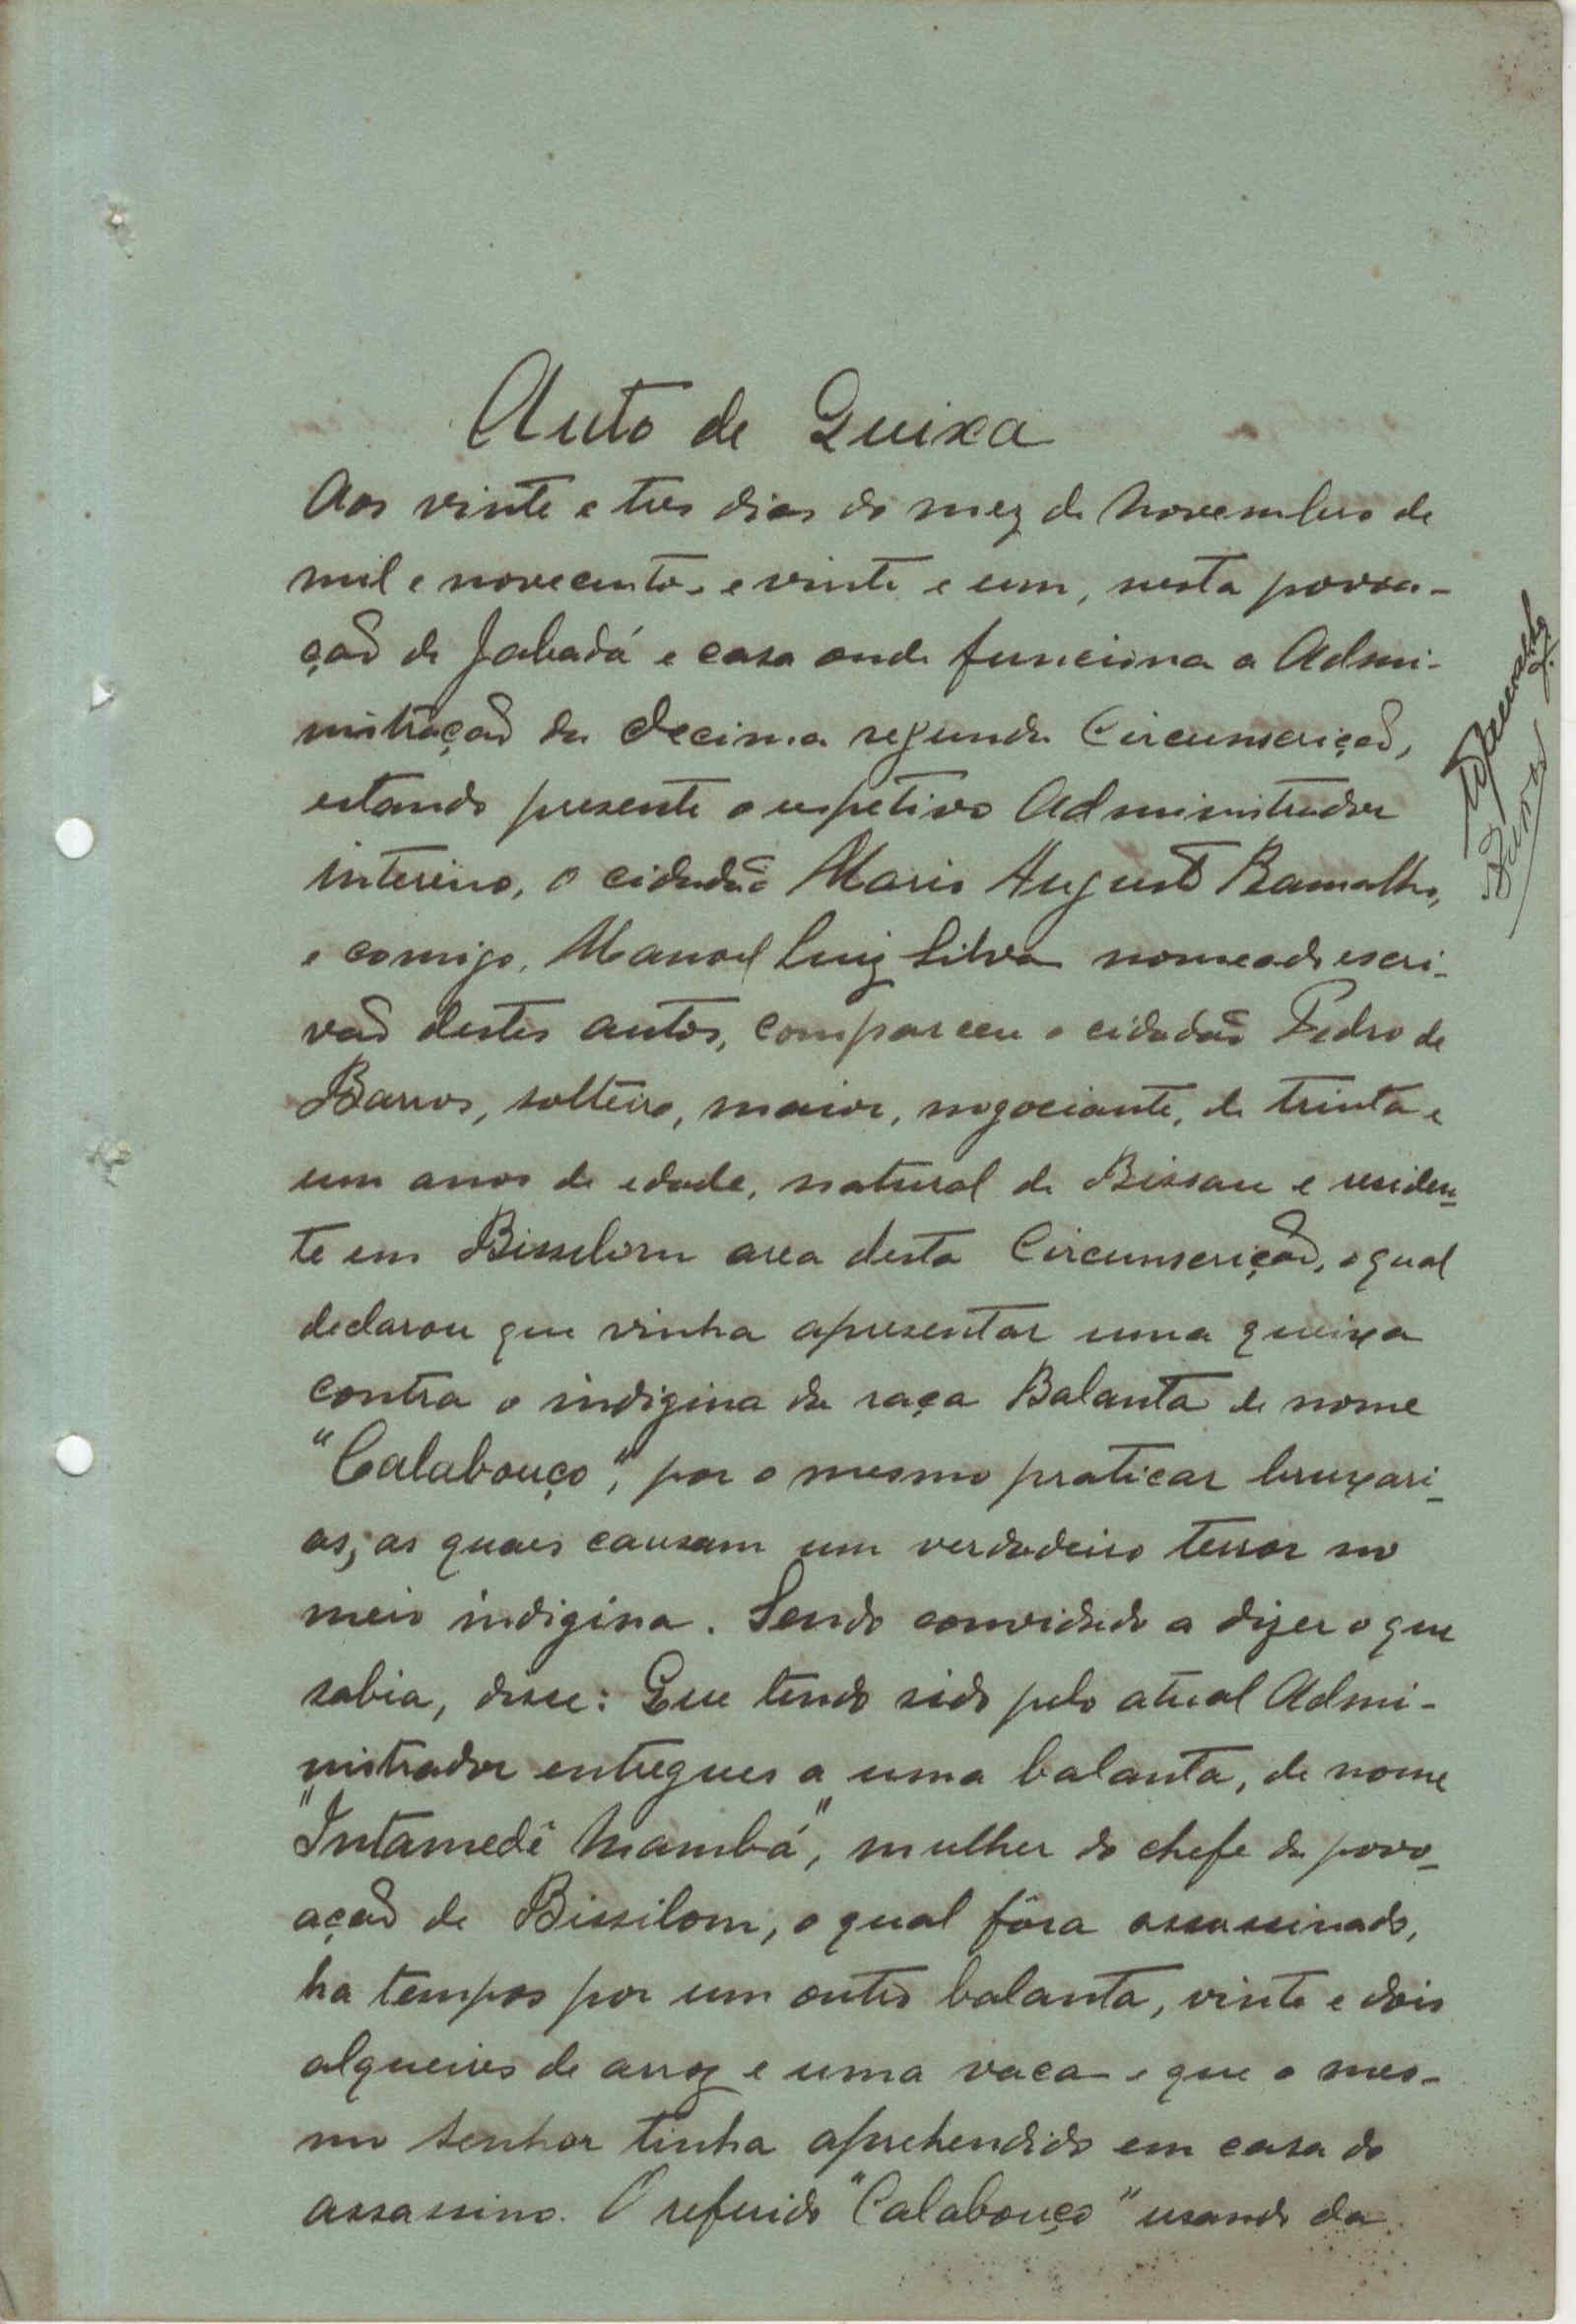 Auto de Queixa
Aos vinte e tres dias do mez de Novembro de
mil e novecentos e vinte e um, nesta povoa-
ção de Jabadá e casa onde funciona a Admi-
nistração da decima segunda Circunscrição,
estando presente o respetivo Administrador
interino, o cidadão Mario Augusto Ramalho,
e comigo, Manoel Luiz Silva nomeado escri-
vão destes autos, compareceu o cidadão Pedro de
Barros, solteiro, maior, negociante, de trinta e
um anos de edade, natural de Bissau e residen-
te em Bisselom area desta Circunscrição, o qual
declarou que vinha apresentar uma queixa
contra o indigina da raça Balanta de nome
"Calabouço", por o mesmo praticar bruxari-
as, as quaes causam um verdadeiro terror no
meio indigina. Sendo convidado a dizer o que
sabia, disse: Que tendo sido pelo atual Admi-
nistrador entregues a uma balanta, de nome
"Intamedê Nambá", mulher do chefe da povo-
ação de Bissilom, o qual fôra assassinado,
ha tempos por um outro balanta, vinte e dois
alqueires de arroz e uma vaca e que o mes-
mo senhor tinha aprehendido em casa do
assassino. O referido "Calabouço" usando da
Ramalho